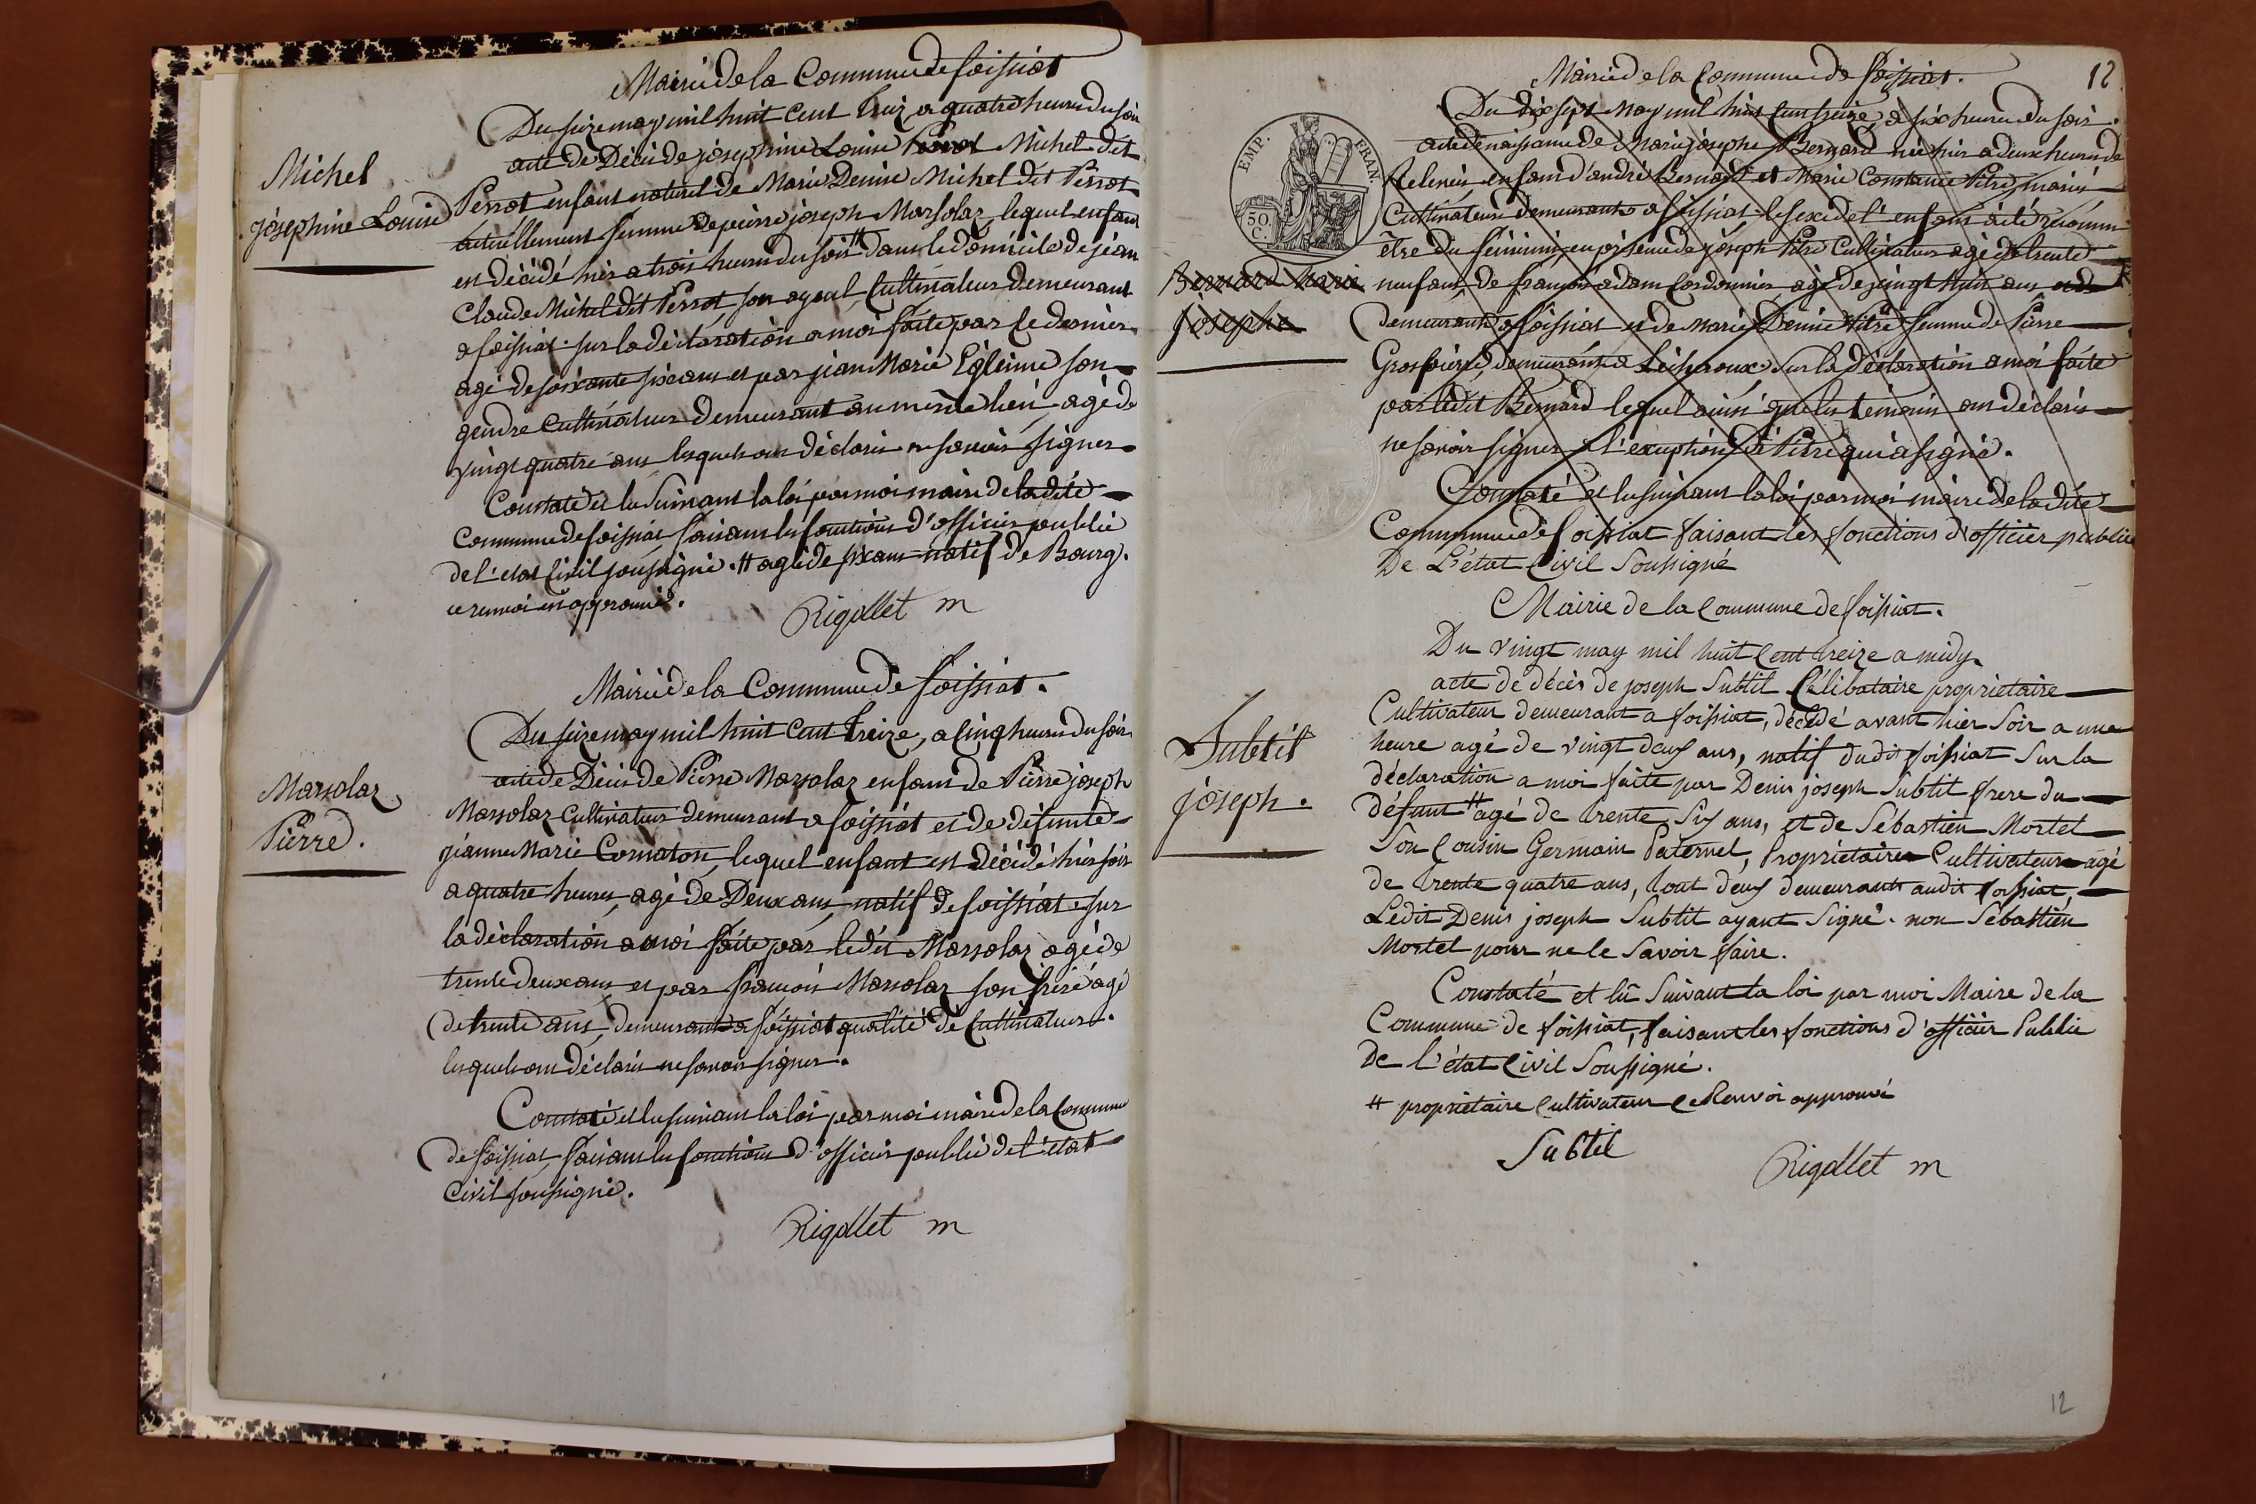 Mairie de la Commune de foissiat
Du seize may mil huit cent treize a quatre heures du soir
acte de Décès de joséphine Louise Michel dit
Michel
joséphine Louise
Perrot enfant naturel de Marie Denise Michel dit Perrot
actuellement femme de pierre joseph Marsolaz, lequel enfant
est décédé hier a trois heures du soir # dans le domicile de jean
Claude Michel dit Perrot, son ayeul, Cultivateur demeurant
a foissiat. sur la déclaration a moi faite par ce dernier
agé de soixante six ans et par jean Marie son
gendre Cultivateur demeurant au même lieu agé de
vingt quatre ans lesquels ont déclaré ne savoir signer
Constaté et lu suivant la loi par moi maire de la dite
Commune de foissiat faisant les fonctions d'officier public
de l'etat Civil soussigné. # agé de six ans natif de Bourg.
ce renvoi est approuvé.
Rigollet m
Mairie de la Commune de foissiat.
Du seize may mil huit cent treize, a cinq heures du soir
acte de Décès de Pierre Marsolaz enfant de Pierre joseph
Marsolaz
Pierre.
Marsolaz Cultivateur demeurant a foissiat et de défunte
jeanne Marie Cornaton, lequel enfant est décédé hier soir
a quatre heures, agé de Deux ans, natif de foissiat. sur
la déclaration a moi faite par ledit Marsolaz agé de
trente deux ans et par françois Marsolaz son frère agé
de trente ans, demeurants a foissiat qualité de Cultivateurs.
lesquels ont déclaré ne savoir signer.
Constaté et lu suivant la loi par moi maire de la Commune
de foissiat, faisant les fonctions d'officier public de l'état
Civil soussigné.
Rigollet m
12
Mairie de la Commune de foissiat.
Du dix sept may mil huit cent treize, a six heures du soir.
acte de naissance de Marie josephe Bernard née hier a deux heures de
EMP. FRAN.
50 C.
relevée enfant d'andré Bernard et Marie Constance Pitre, mariés
Cultivateurs demeurants a foissiat le sexe de l'enfant a été reconnu
être du féminin, en présence de joseph Pitre Cultivateur agé de trente
Bernard Marie
josephe
neuf ans, de françois adam Cordonnier agé de vingt huit ans
demeurants a foissiat et de Marie Denise Pitre femme de Pierre
Grospierre, demeurant a Lécheroux. sur la déclaration a moi faite
par ledit Bernard lequel ainsi que les témoins ont déclaré
ne savoir signer a l'exception de Pitre qui a signé.
Constaté et lu suivant la loi par moi maire de la dite
Commune de foissiat faisant les fonctions d'officier public
De L'état Civil Soussigné
Mairie de la Commune de foissiat.
Du vingt may mil huit Cent treize a midy.
acte de décès de joseph Subtil Célibataire propriétaire
Subtil
joseph.
Cultivateur demeurant a foissiat, décédé avant hier Soir a une
heure agé de vingt deux ans, natif dudit foissiat Sur la
déclaration a moi faite par Denis joseph Subtil frere du
défunt # agé de trente Six ans, et de Sébastien Mortel
Son Cousin Germain Paternel, Propriétaires Cultivateurs agé
de trente quatre ans, tout deux demeurants audit foissiat,
Ledit Denis joseph Subtil ayant Signé. non Sébastien
Mortel pour ne le Savoir faire.
Constaté et lû Suivant la loi par moi Maire de la
Commune de foissiat, faisant les fonctions d'officier Public
De l'état Civil Soussigné.
# propriétaire Cultivateur Ce Renvoi approuvé
Subtil
Rigollet m
12